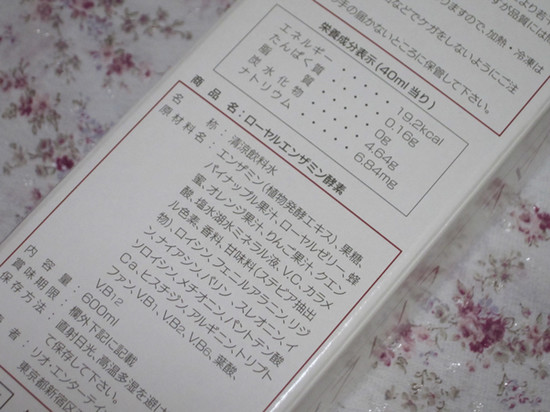 手の届かないところに保管して下さい。
栄養成分表示(40ml当り)
エネルギー・・・・・19.2kcal
たんぱく質・・・・・0.16g
脂　質・・・・・0g
炭水化物・・・・・4.64g
ナトリウム・・・・・6.84mg
商品名:ローヤルエンザミン酵素
名　称:清涼飲料水
原材料名:エンザミン(植物発酵エキス)、果糖、
パイナップル果汁、ローヤルゼリー、蜂
蜜、オレンジ果汁、りんご果汁、クエン
酸、塩水湖水ミネラル液、V.C、カラメ
ル色素、香料、甘味料(ステビア抽出
物)、ロイシン、フェニールアラニン、リジ
ン、ナイアシン、バリン、スレオニン、イ
ソロイシン、メチオニン、パントテン酸
Ca、ヒスチジン、アルギニン、トリプト
ファン、VB1、VB2、VB6、葉酸、
VB12
内容量:600ml
賞味期限:欄外下記に記載
保存方法:直射日光、高温多湿を避け
て保存して下さい。
者:リオ・エンターテイ
東京都新宿区